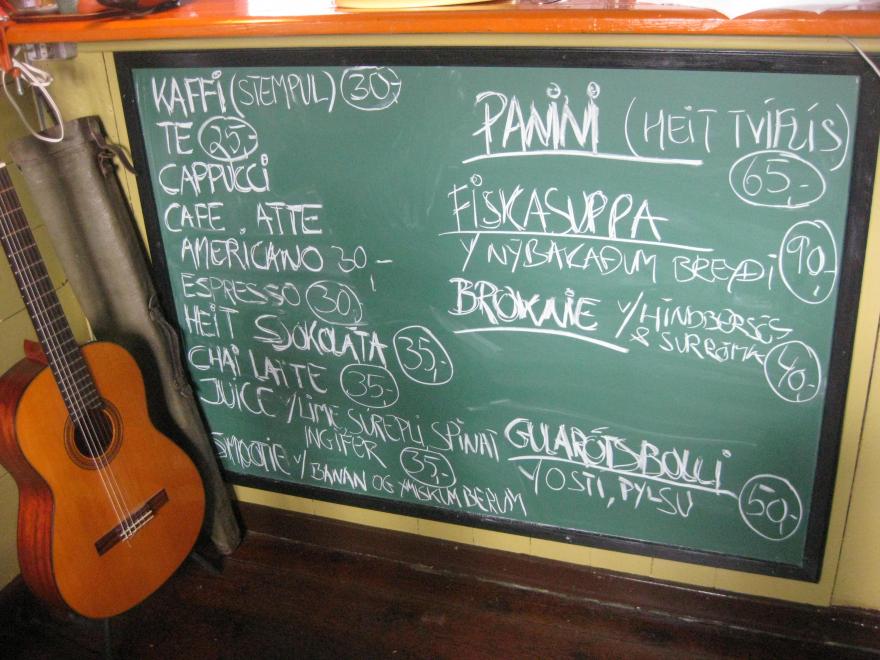 KAFFI (STEMPUL) 30,-
TE 25,-
CAPPUCCI
CAFE ATTE
AMERICANO 30,-
ESPRESSO 30,-
HEIT SJOKOLÁTA 35,-
CHAI LATTE 35,-
JUICE V/LIME, SÚREPLI SPINAT
INGIFER 35,-
SMOOTIE V/BANAN OG YMISKUM BERUM
PANINI (HEIT TVÍFLÍS)
65,-
FISKASUPPA
V/ NÝBAKAÐUM BREYÐI 90,-
BROWNIE V/HINDBERSÉS
& SURRÓMA 40,-
GULARÓTSBOLLI
V/OSTI, PYLSU 50,-